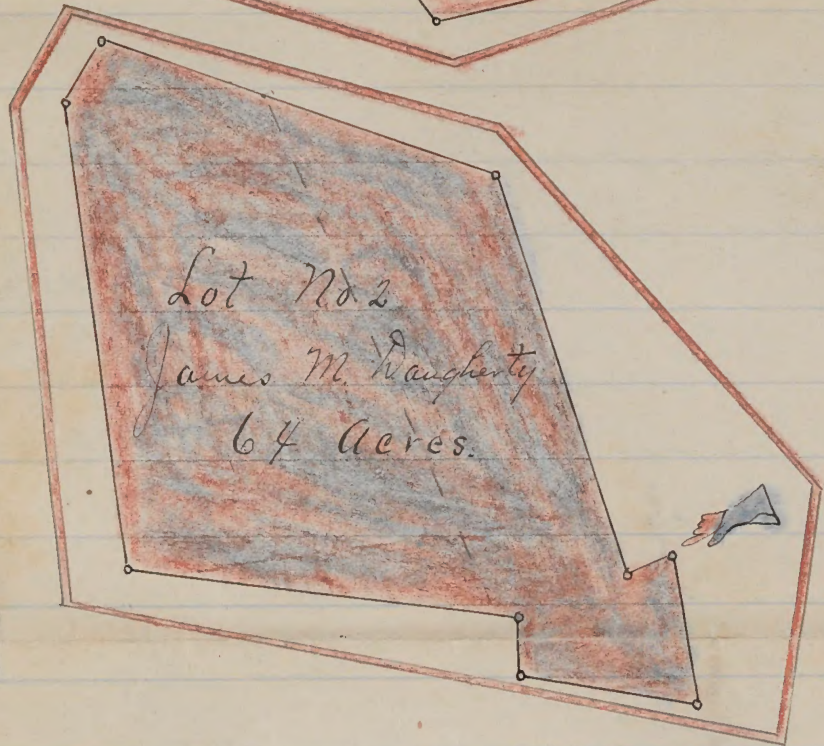 Lot No. 2
James M. Daugherty
64 Acres.